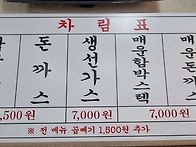 차림표
돈까스
생선가스
매운함박스텍
매운돈까스
,500원
7,000원
7,000원
※ 전 메뉴 곱빼기 1,500원 추가